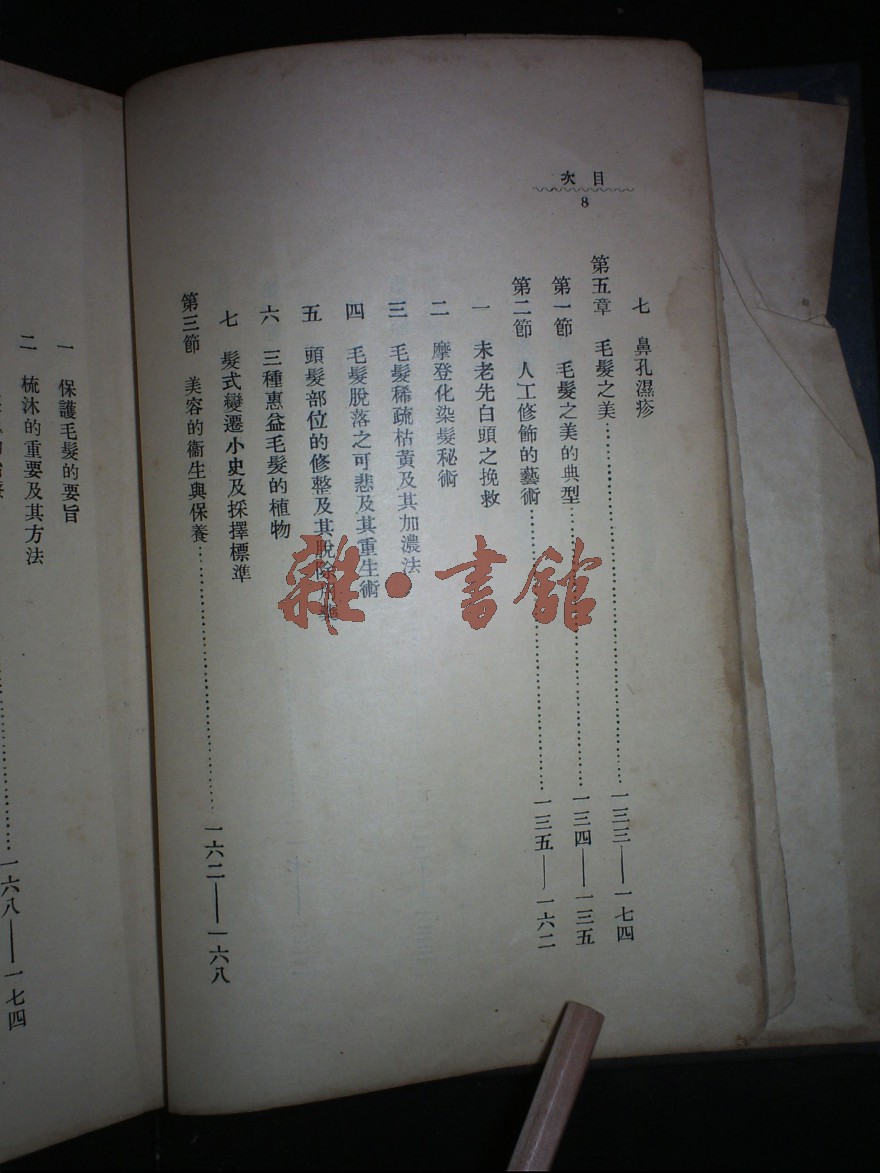 目次
8
七 鼻孔濕疹
第五章 毛髮之美…………一三三——一七四
第一節 毛髮之美的典型…………一三四——一三五
第二節 人工修飾的藝術…………一三五——一六二
一 未老先白頭之挽救
二 摩登化染髮秘術
三 毛髮稀疏枯黃及其加濃法
四 毛髮脫落之可悲及其重生術
五 頭髮部位的修整及其脫除
六 三種惠益毛髮的植物
七 髮式變遷小史及採擇標準
第三節 美容的衞生與保養…………一六二——一六八
一 保護毛髮的要旨
二 梳沐的重要及其方法
一六八——一七四
雜·書館